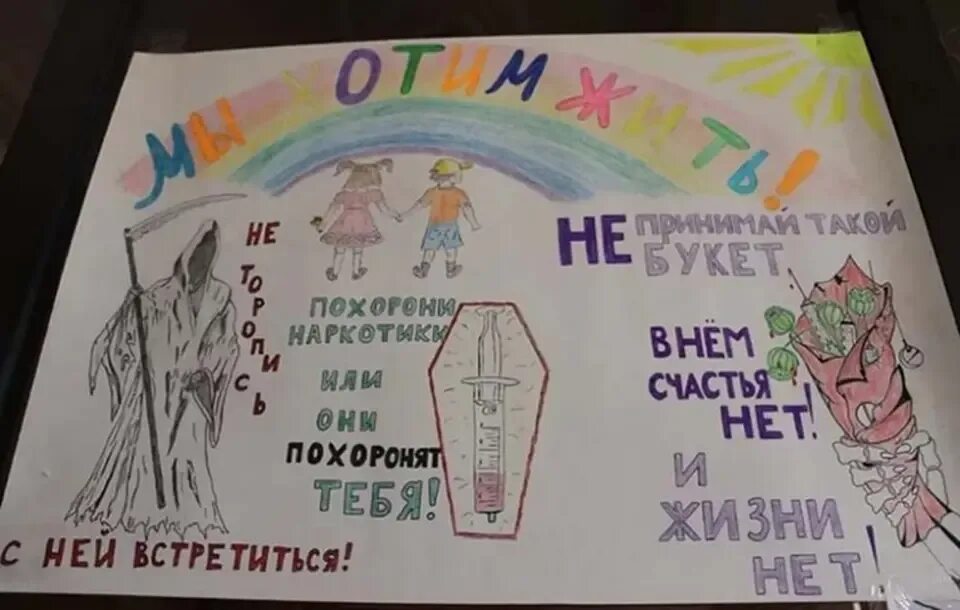 МЫ ХОТИМ ЖИТЬ!
НЕ
ТОРОПИСЬ
С НЕЙ ВСТРЕТИТЬСЯ!
ПОХОРОНИ
НАРКОТИКИ
ИЛИ
ОНИ
ПОХОРОНЯТ
ТЕБЯ!
НЕ ПРИНИМАЙ ТАКОЙ
БУКЕТ
В НЁМ
СЧАСТЬЯ
НЕТ!
И
ЖИЗНИ
НЕТ!